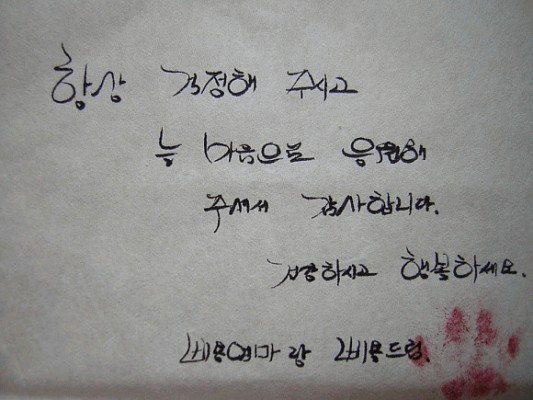 항상 걱정해 주시고
늘 마음으로 응원해
주셔서 감사합니다.
건강하시고 행복하세요.
레몬엄마랑 레몬드림.